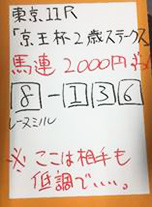 東京11R
「京王杯2歳ステークス」
馬連2000円
8-136
レーヌミル
※ここは相手も
低調でいい。